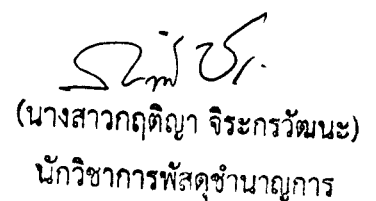 (นางสาวกฤติญา จิระกรวัฒนะ)
นักวิชาการพัสดุชำนาญการ